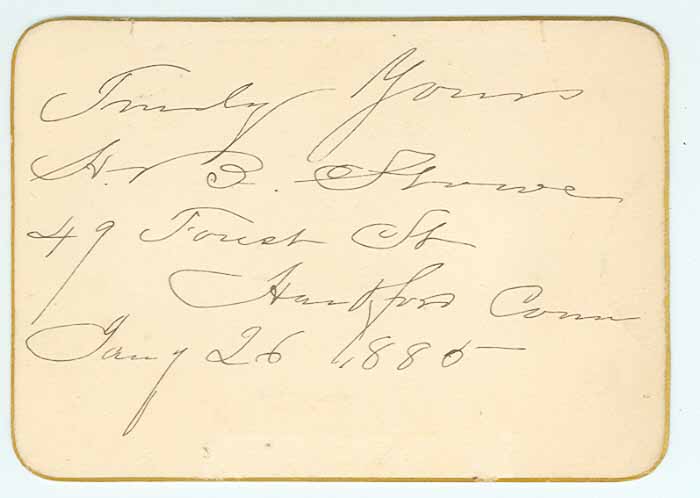 Truly Yours
H. B. Stowe
49 Forest St
Hartford Conn
Jany 26 1885